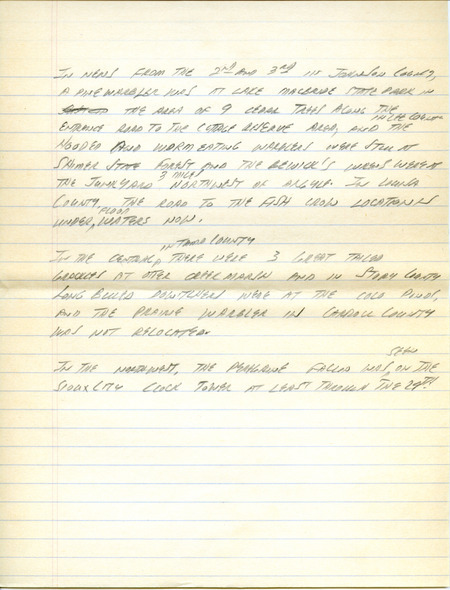 IN NEWS FROM THE 2nd AND 3rd IN JOHNSON COUNTY,
A PINE WARBLER WAS AT LAKE MACBRIDE STATE PARK IN
THE AREA OF 9 CEDAR TREES ALONG THE
ENTRANCE ROAD TO THE COTTAGE RESERVE AREA, AND THE
HOODED AND WORM EATING WARBLERS WERE STILL AT
SHIMEK STATE FOREST AND THE BEWICK'S WRENS WERE AT
THE JUNKYARD 3 MILES NORTHWEST OF ARGYLE. IN LOUISA
COUNTY, THE ROAD TO THE FISH CROW LOCATION IS
UNDER FLOOD WATERS NOW.
IN THE CENTRAL, IN TAMA COUNTY THERE WERE 3 GREAT TAILED
GRACKLES AT OTTER CREEK MARSH AND IN STORY COUNTY
LONG BILLED DOWITCHERS WERE AT THE COLO PONDS,
AND THE PRAIRIE WARBLER IN CARROLL COUNTY
WAS NOT RELOCATED.
IN THE NORTHWEST, THE PEREGRINE FALCON WAS SEEN ON THE
SIOUX CITY CLOCK TOWER AT LEAST THROUGH THE 29th.